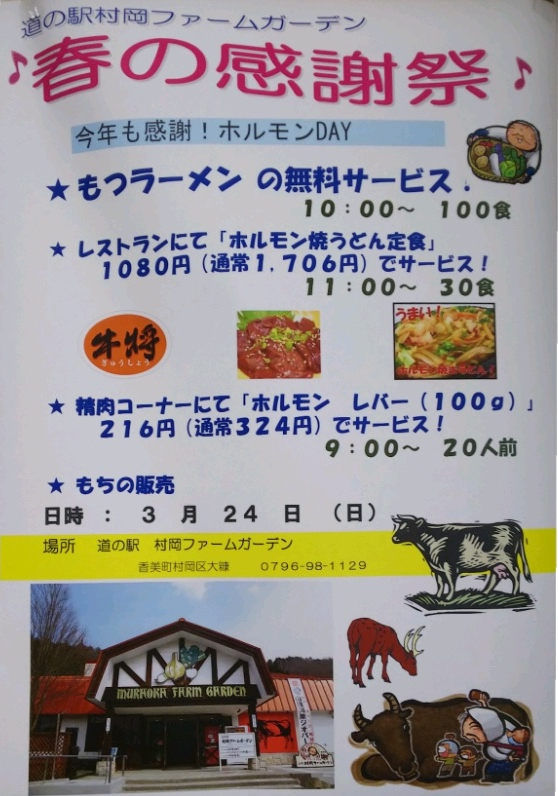 道の駅村岡ファームガーデン
♪春の感謝祭♪
今年も感謝！ホルモンDAY
★ もつラーメン の無料サービス！
10：00～ 100食
★ レストランにて「ホルモン焼うどん定食」
1080円（通常1,706円）でサービス！
11：00～ 30食
牛将
ぎゅうしょう
うまい！
ホルモン焼きうどん！
★ 精肉コーナーにて「ホルモン レバー（100g）」
216円（通常324円）でサービス！
9：00～ 20人前
★ もちの販売
日時 ： 3 月 24 日 （日）
場所 道の駅 村岡ファームガーデン
香美町村岡区大糠 0796-98-1129
MURAOKA FARM GARDEN
村岡ファームガーデン